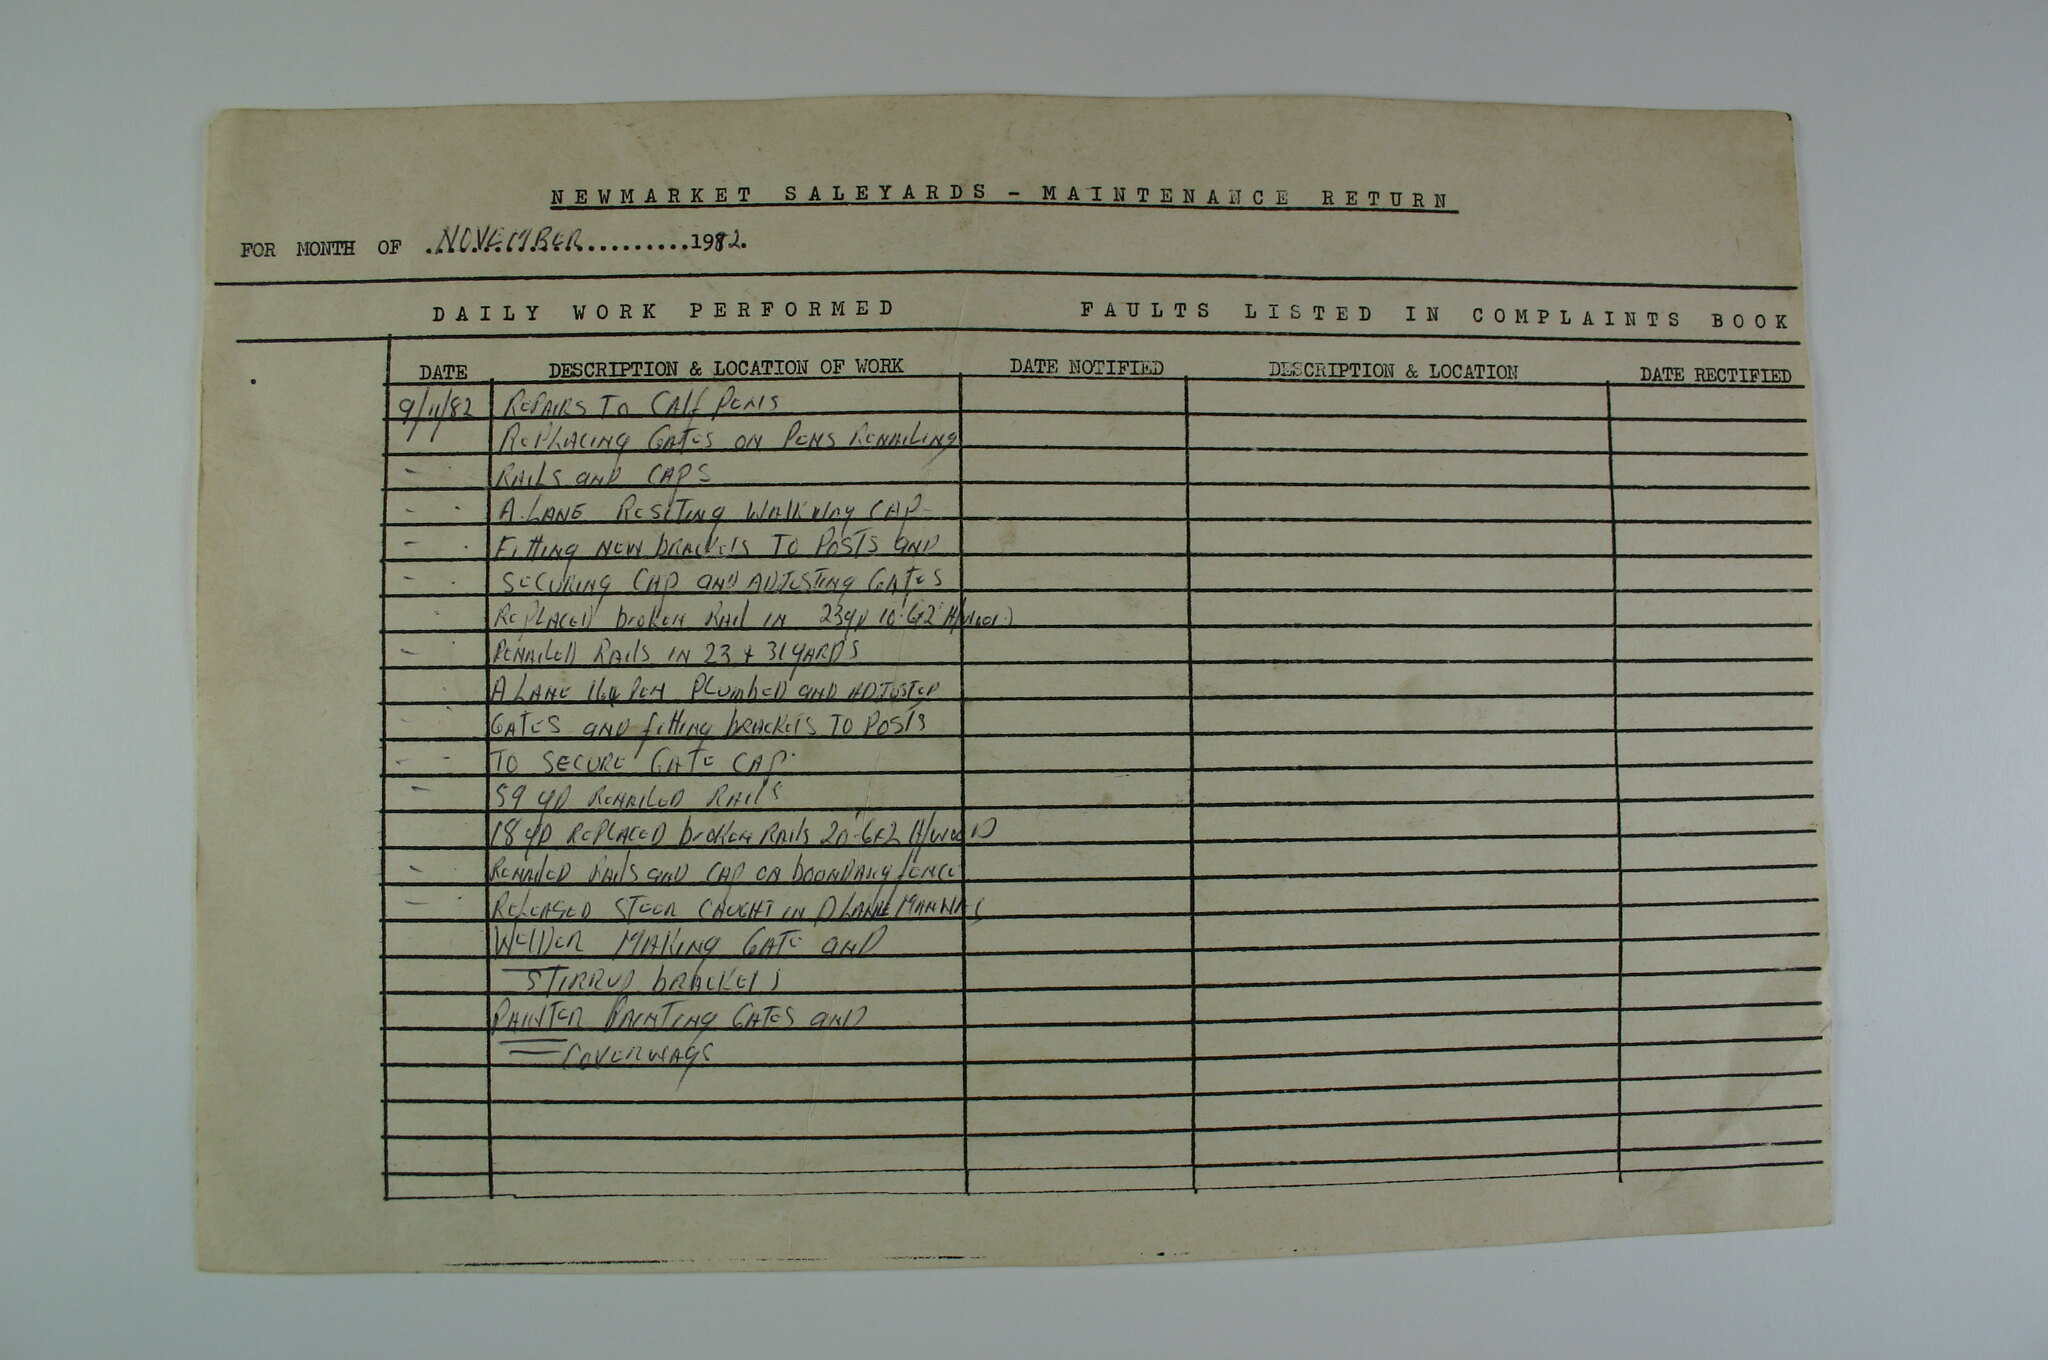 NEWMARKET SALEYARDS - MAINTENANCE RETURN
FOR MONTH OF .NOVEMBER..........1982.
DAILY WORK PERFORMED FAULTS LISTED IN COMPLAINTS BOOK
DATE DESCRIPTION & LOCATION OF WORK DATE NOTIFIED DESCRIPTION & LOCATION DATE RECTIFIED
9/11/82 REPAIRS TO CALF PENS
REPLACING GATES ON PENS RENAILING
RAILS AND CAPS
A.LANE RESITING WALKWAY CAP
FITTING NEW BRACKETS TO POSTS AND
SECURING CAP AND ADJUSTING GATES
REPLACED BROKEN RAIL IN 23YD 10.6x2 H/WOOD
RENAILED RAILS IN 23 + 31 YARDS
A LANE PEN PLUMBED AND ADJUSTED
GATES AND FITTING BRACKETS TO POSTS
TO SECURE GATE CAP.
59 YD RENAILED RAILS
18 YD REPLACED BROKEN RAILS 20-6x2 H/WOOD
RENAILED RAILS AND CAP ON BOUNDARY FENCE
RELEASED STEER CAUGHT IN D LANE
WELDER MAKING GATE AND
STIRRUP BRACKETS
PAINTER PAINTING GATES AND
COVERWAYS